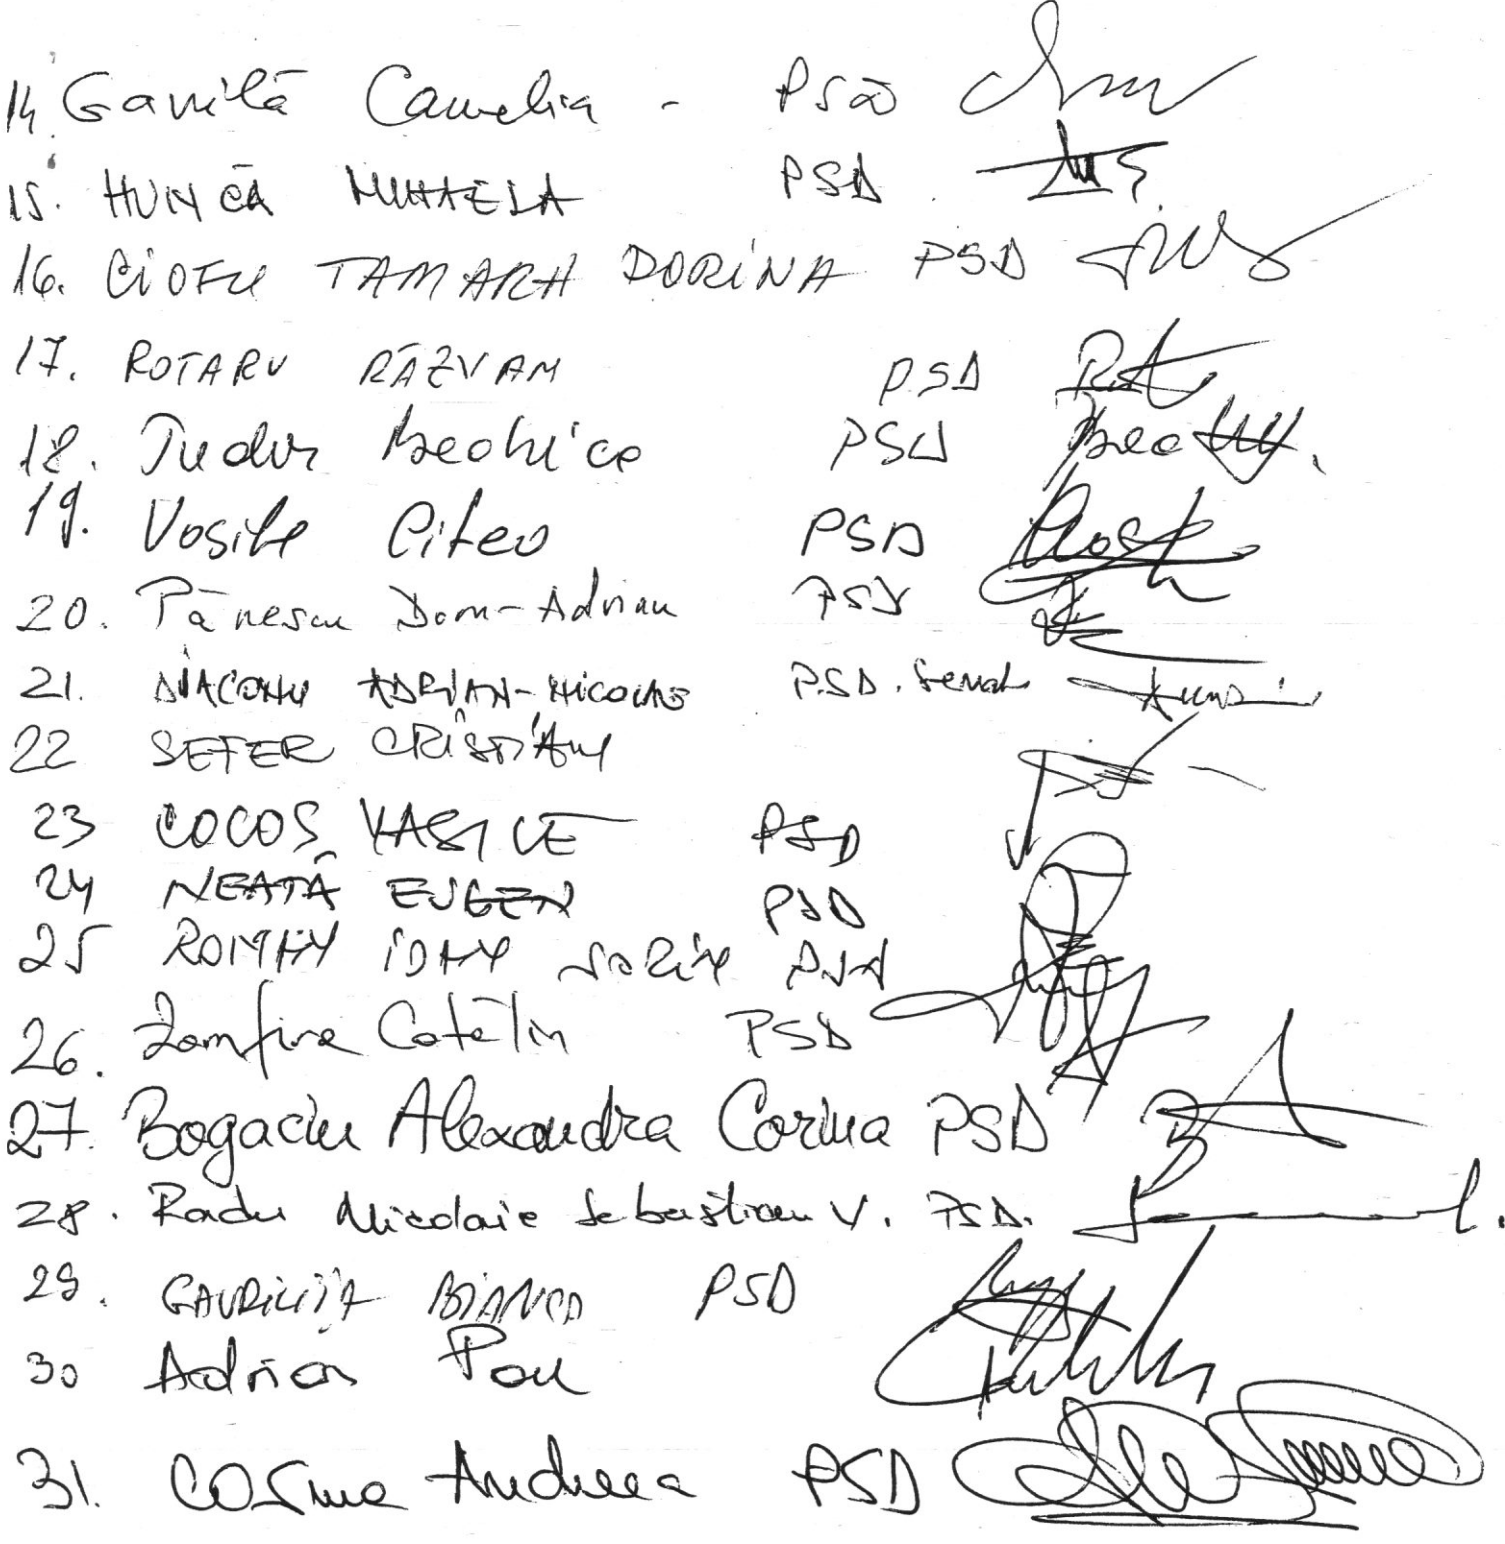 14. Gavrilă Camelia - PSD
15. HUNCĂ MIHAELA PSD
16. CIOFU TAMARA DORINA PSD
17. ROTARU RĂZVAN PSD
18. Tudor Beatrice PSD
19. Vasile Citea PSD
20. Pănescu Dom-Adrian PSD
21. DIACONU ADRIAN-NICOLAE P.S.D. Senat
22 SEFER CRISTIAN
23 COCOS VASILE PSD
24 NEATĂ EUGEN PSD
25 ROMAN IOAN SORIN PSD
26. Zamfira Cătălin PSD
27. Bogaciu Alexandra Corina PSD
28. Radu Nicolaie Sebastian V. PSD.
29. GAVRILIȚĂ BIANCA PSD
30 Adrian Pau
31. COSma Andreea PSD